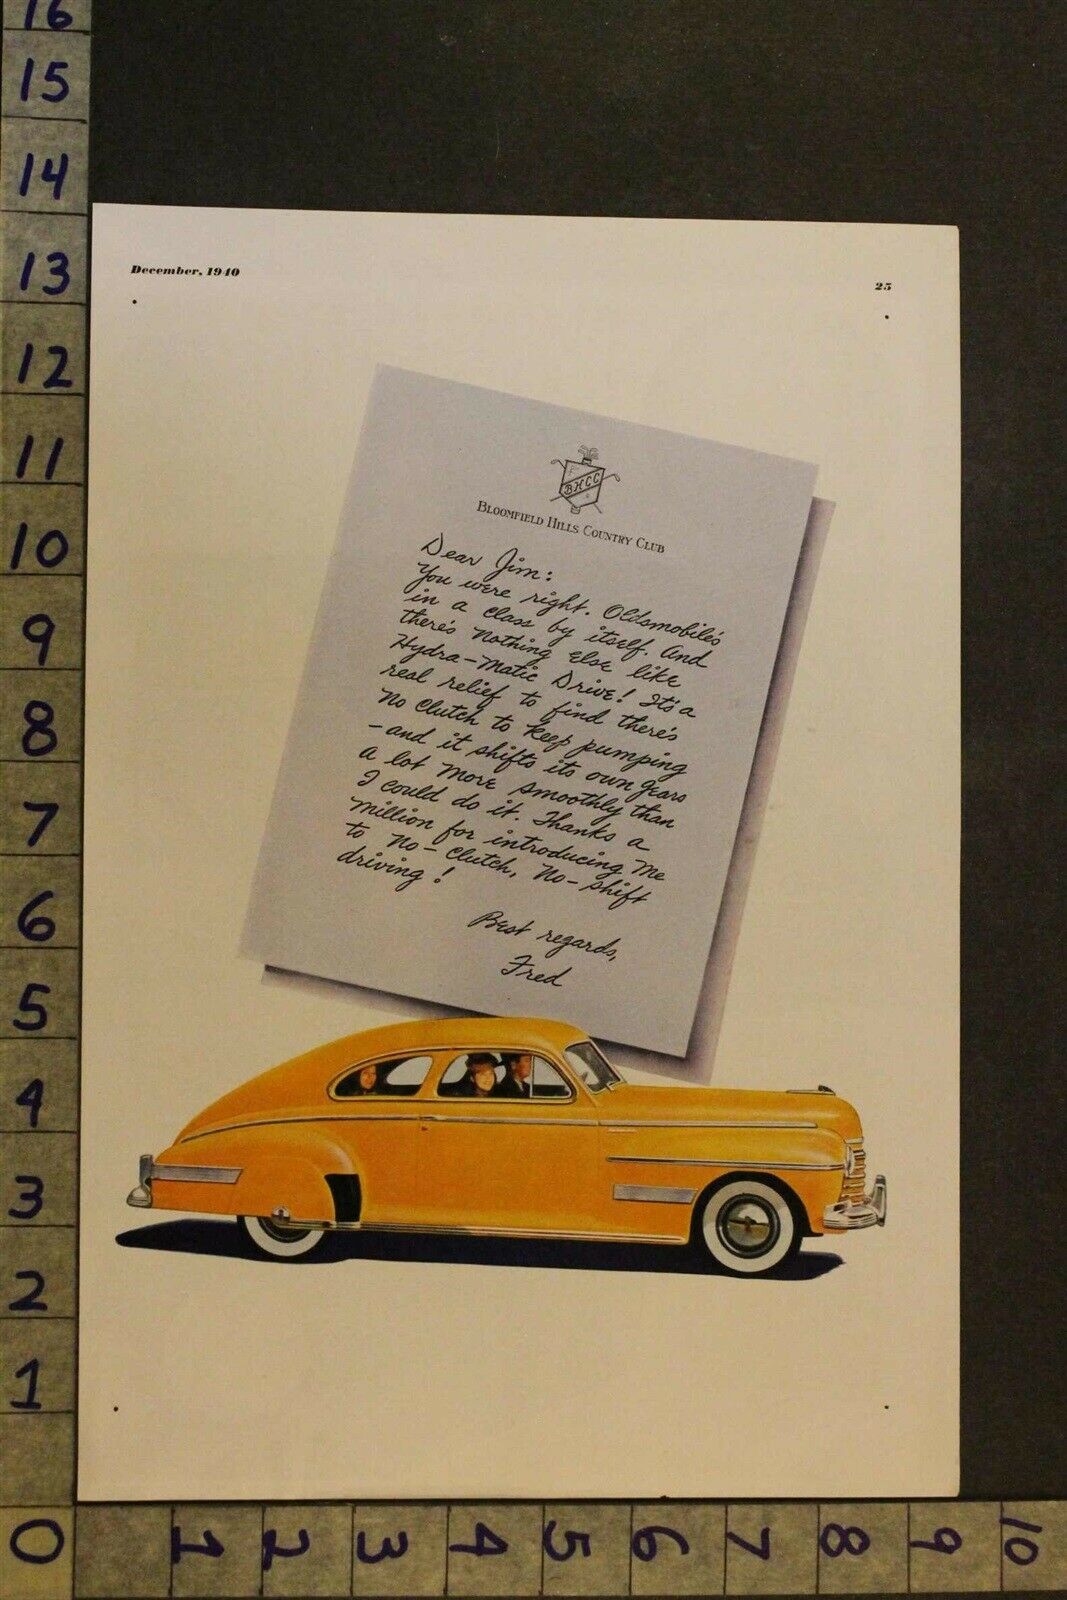 16
15
14
13
12
11
10
9
8
7
6
5
4
3
2
1
0
1
2
3
4
5
6
7
8
9
10
December, 1940
25
BHCC
BLOOMFIELD HILLS COUNTRY CLUB
Dear Jim:
You were right. Oldsmobile's
in a class by itself. And
there's nothing else like
Hydra-Matic Drive! It's a
real relief to find there's
no clutch to keep pumping
-and it shifts its own gears
a lot more smoothly than
I could do it. Thanks a
million for introducing me
to no-clutch, no-shift
driving!
Best regards,
Fred